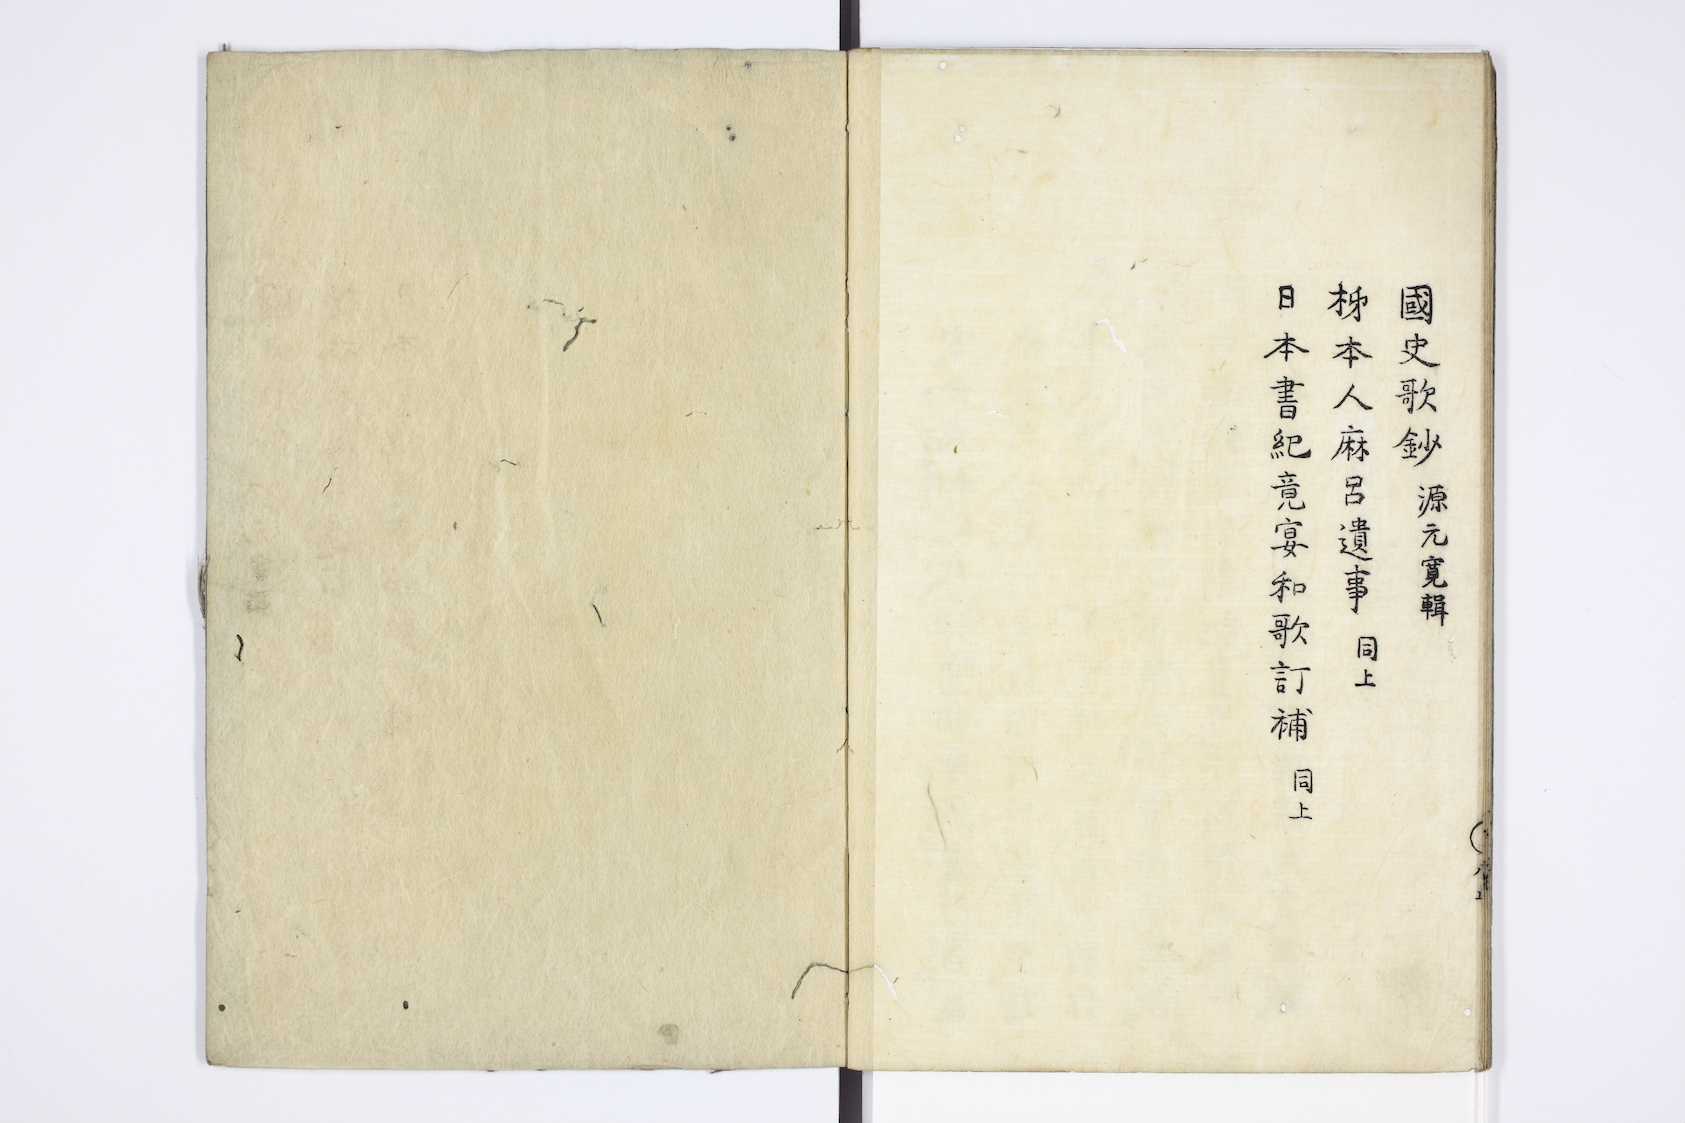 國史歌鈔 源元寛輯
柹本人麻呂遺事 同上
日本書紀竟宴和歌訂補 同上